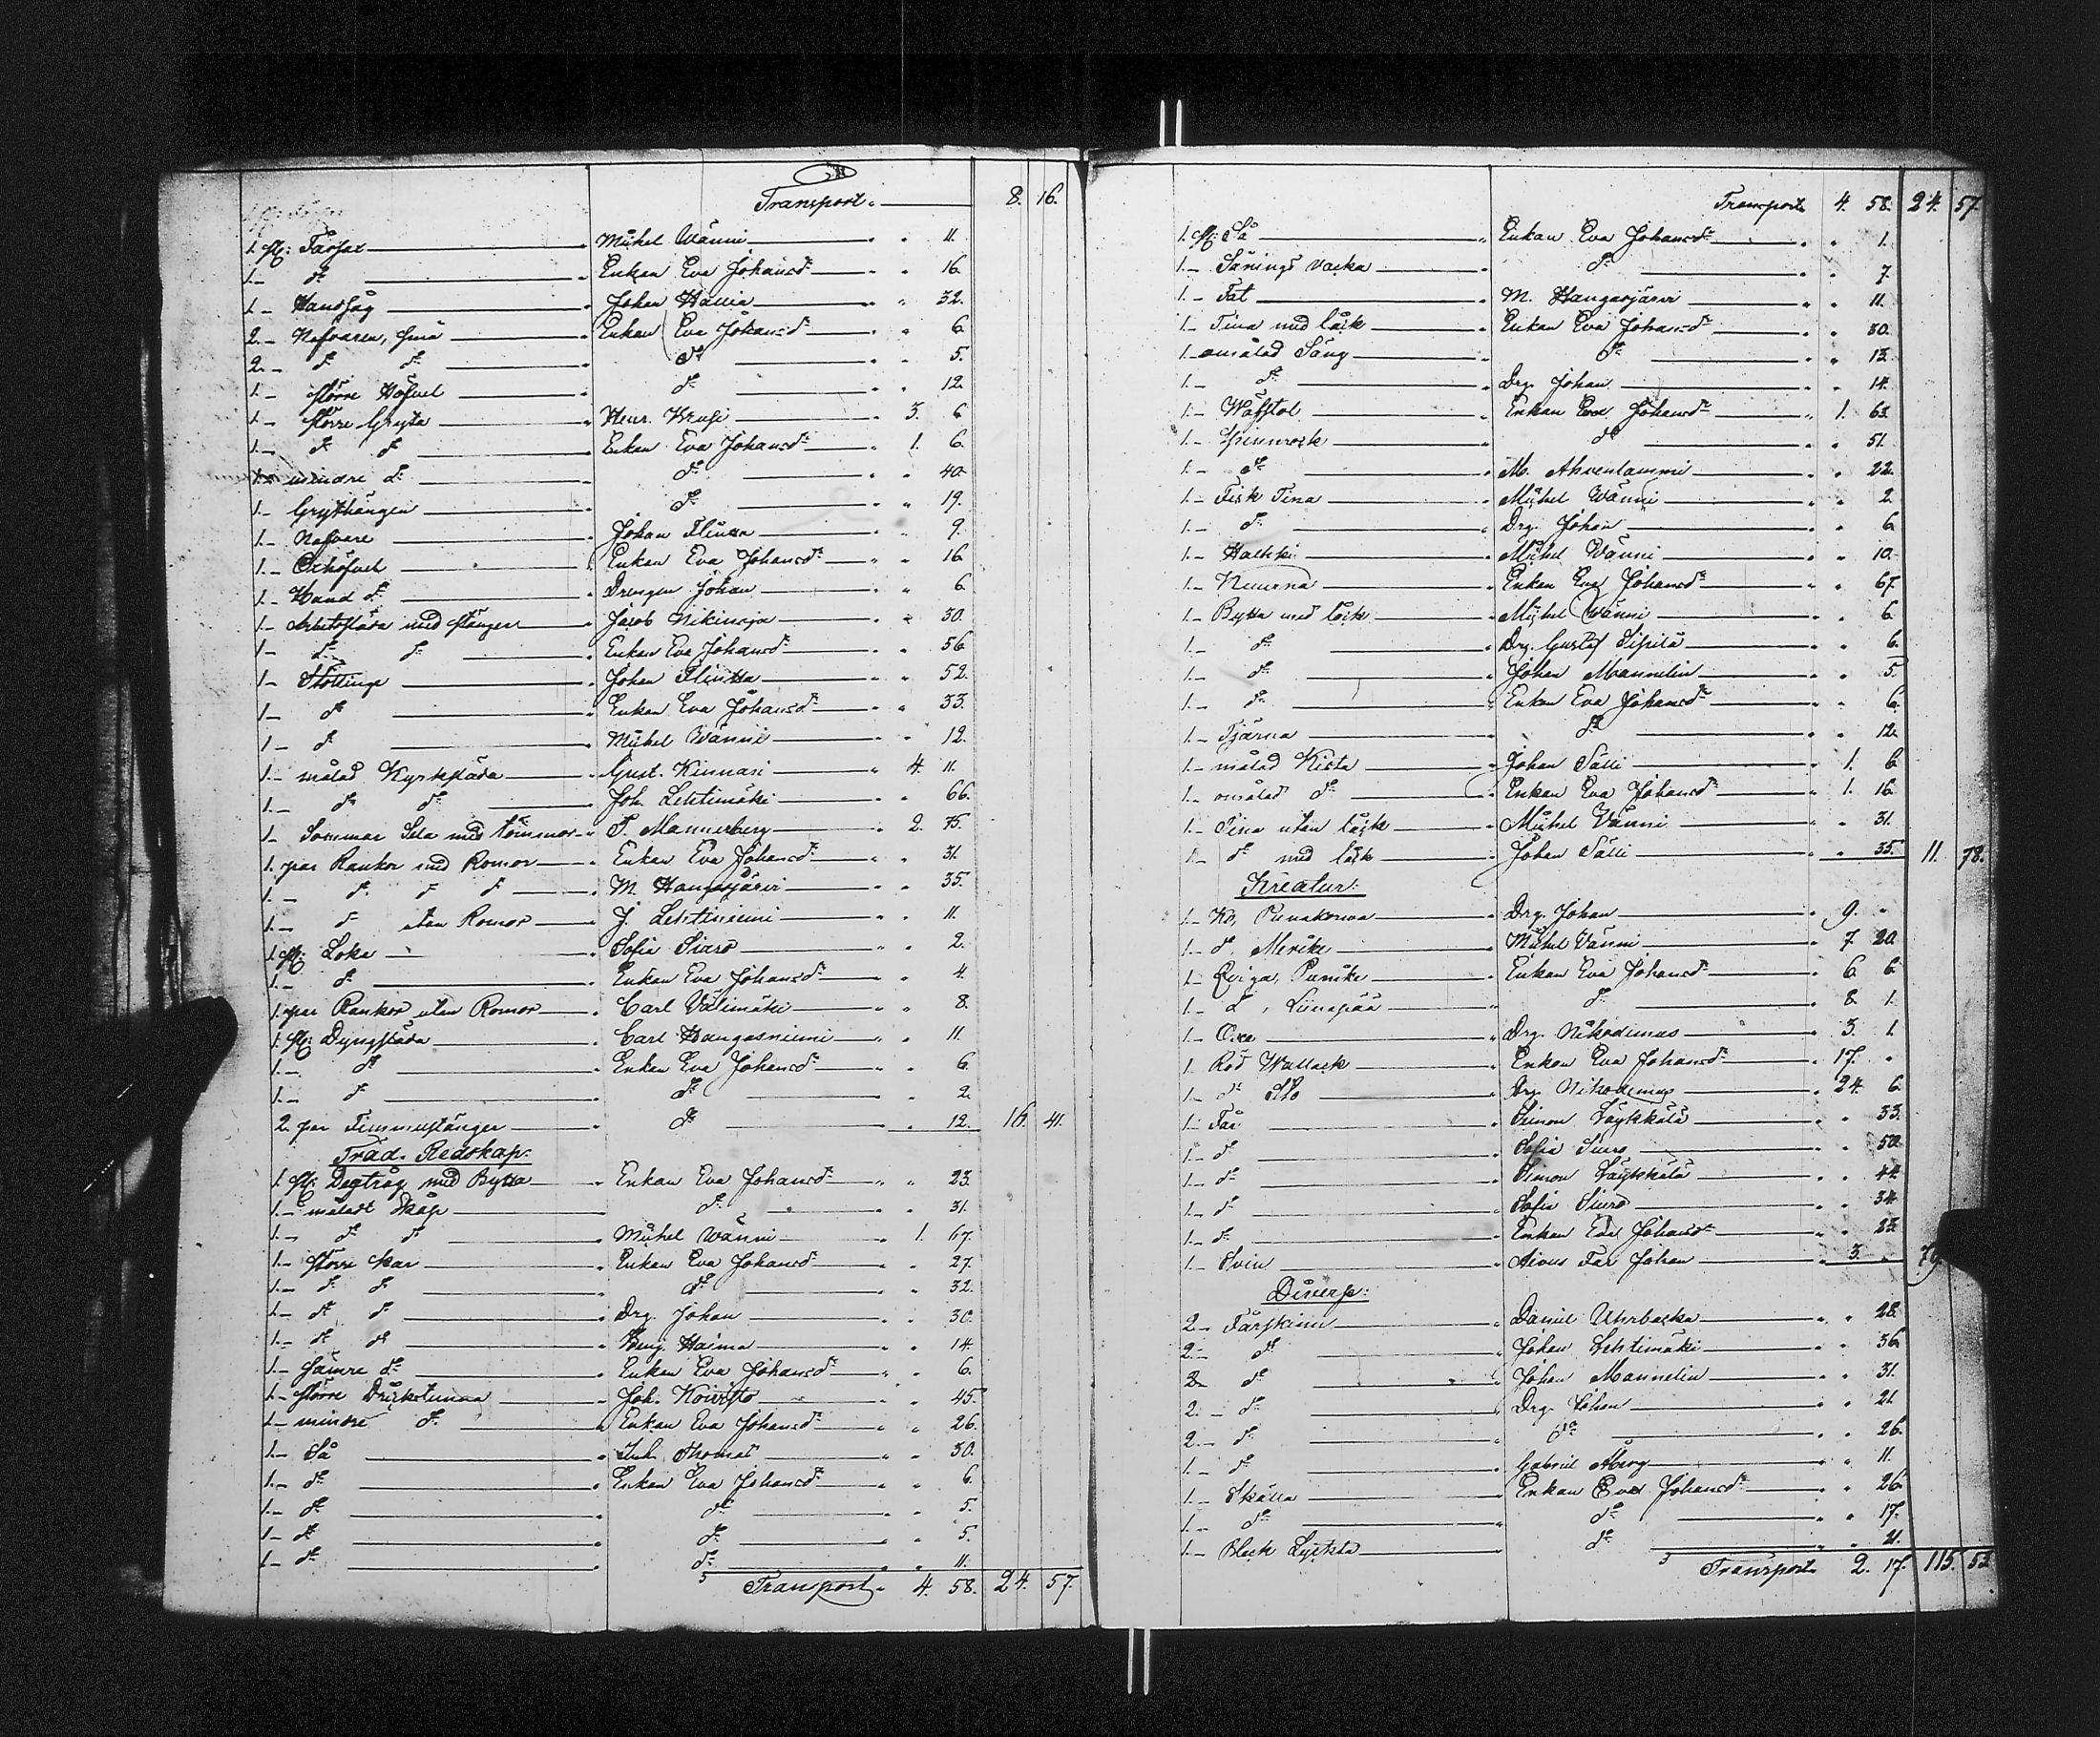 Transport. 8. 16.
1. st: Fårsax Mickel Wänni " " 11.
1. - d:o Enkan Eva Johansd:r " " 16.
1 - Handsåg Johan Hallia " " 32.
2 - Nafvaren, små Enkan Eva Johansd:r " " 6.
2 - d:o d:o d:o " " 5.
1 - större Höfvel d:o " " 12.
1 - större Gryta Henr. Krusi " 3. 6
1 - d:o d:o Enkan Eva Johansd:r " 1. 6.
1 - mindre d:o d:o " " 40.
1 - Grythängen d:o " " 19.
1 - Nafvare Johan " " 9.
1 - Enkan Eva Johansd:r " " 16
1 - Hand d:o Drengen Johan " " 6
1 - Arbetssläda med stänger Jacob " " 30.
1 - d:o d:o Enkan Eva Johansd:r " " 56
1 - Stöttinge Johan " " 52.
1 - d:o Enkan Eva Johansd:r " " 33.
1 - d:o Mickel Wänni " " 12.
1 - målad Kyrksläda Gust. Kinnari " 4. 11.
1 - d:o d:o Joh. Lehtimäki " " 66.
1 - Sommar Sela med tömmar T. Mannerberg " 2. 75.
1. par Rankor med Romor Enkan Eva Johansd:r " " 31.
1 - d:o d:o d:o M. Hangasjärvi " " 35.
1 - d:o utan Romor J. Lehtiniemi " " 11.
1 st: Loka Sofia Siuro " " 2.
1 - d:o Enkan Eva Johansd:r " " 4.
1. par Rankor utan Romor Carl Välimäki " " 8.
1. st: Dyngsläda Carl Hangasniemi " " 11.
1 - d:o Enkan Eva Johansd:r " " 6.
1 - d:o d:o " " 2.
2. par Timmerstänger d:o " " 12. 16. 41.
Träd. Redskap:
1. st: Degtråg med Bytta Enkan Eva Johansd:r " " 23.
1 - måladt Skåp d:o " " 31.
1 - d:o d:o Mickel Wänni " 1. 67.
1 - större kar Enkan Eva Johansd:r " " 27.
1 - d:o d:o d:o " " 32.
1 - d:o d:o Drg. Johan " " 30.
1 - d:o d:o Benj. Haima " " 14.
1 - sämre d:o Enkan Eva Johansd:r " " 6.
1 - större Drickstunna Joh. Koivisto " " 45.
1 - mindre d:o Enkan Eva Johansd:r " " 26.
1 - Så Inh. Thomas " " 30.
1 - d:o Enkan Eva Johansd:r " " 6.
1 - d:o d:o " " 5.
1 - d:o d:o " " 5.
1 - d:o d:o " " 11.
Transport. 4. 58. 24. 57.
Transport 4. 58. 24. 57.
1. st: Så Enkan Eva Johansd:r " " 1.
1 - Sånings vacka d:o " " 7.
1 - Fat M. Hangasjärvi " " 11.
1 - Tina med låck Enkan Eva Johansd:r " " 30.
1 - omålad Säng d:o " " 13.
1 - d:o Drg. Johan " " 14.
1 - Wäfstol Enkan Eva Johansd:r " 1. 63.
1 - Spinnrock d:o " " 51.
1 - d:o M. Ahvenlammi " " 22.
1 - Fisk Tina Mickel Wänni " " 2.
1 - d:o Drg. Johan " " 6.
1 - Mickel Wänni " " 10.
1 - Kuurna Enkan Eva Johansd:r " " 67.
1 - Bytta med låck Mickel Wänni " " 6.
1 - d:o Drg. Gustaf Sipilä " " 6.
1 - d:o Johan Mannelin " " 5.
1 - d:o Enkan Eva Johansd:r " " 6.
1 - Tjärna d:o " " 12.
1 - målad Kista Johan Sälli " 1. 6.
1 - omålad d:o Enkan Eva Johansd:r " 1. 16.
1 - Tina utan låck Mickel Wänni " " 31.
1 - d:o med låck Johan Sälli " " 35. 11. 78.
Kreatur:
1 - Ko, Punakorva Drg. Johan " 9. "
1 - d:o Merike Mickel Vänni " 7. 20.
1 - Qviga, Punike Enkan Eva Johansd:r " 6. 6.
1 - d:o, Liinapää d:o " 8. 1.
1 - Oxe Drg. Nikodemus " 3. 1.
1 - Röd Wallack Enkan Eva Johansd:r " 17. "
1 - d:o Sto Drg. Nikodemus " 24. 6.
1 - Får Simon Löytökälä " " 33.
1 - d:o Sofia Siuro " " 50.
1 - d:o Simon " " 44.
1 - d:o Sofia Siuro " " 34.
1 - d:o Enkan Eva Johansd:r " " 23.
1 - Svin Johan " 3. " 79
Diverse:
2 - Fårskinn Daniel Uhrbacka " " 28.
2 - d:o Johan Lehtimäki " " 36.
2 - d:o Johan Mannelin " " 31.
2 - d:o Drg. Johan " " 21.
2 - d:o d:o " " 26.
1 - d:o Gabriel Åberg " " 11.
1 - Skälla Enkan Eva Johansd:r " " 26.
1 - d:o d:o " " 17.
1 - Bleck Lyckta d:o " " 21.
Transport 2. 17. 115. 52.